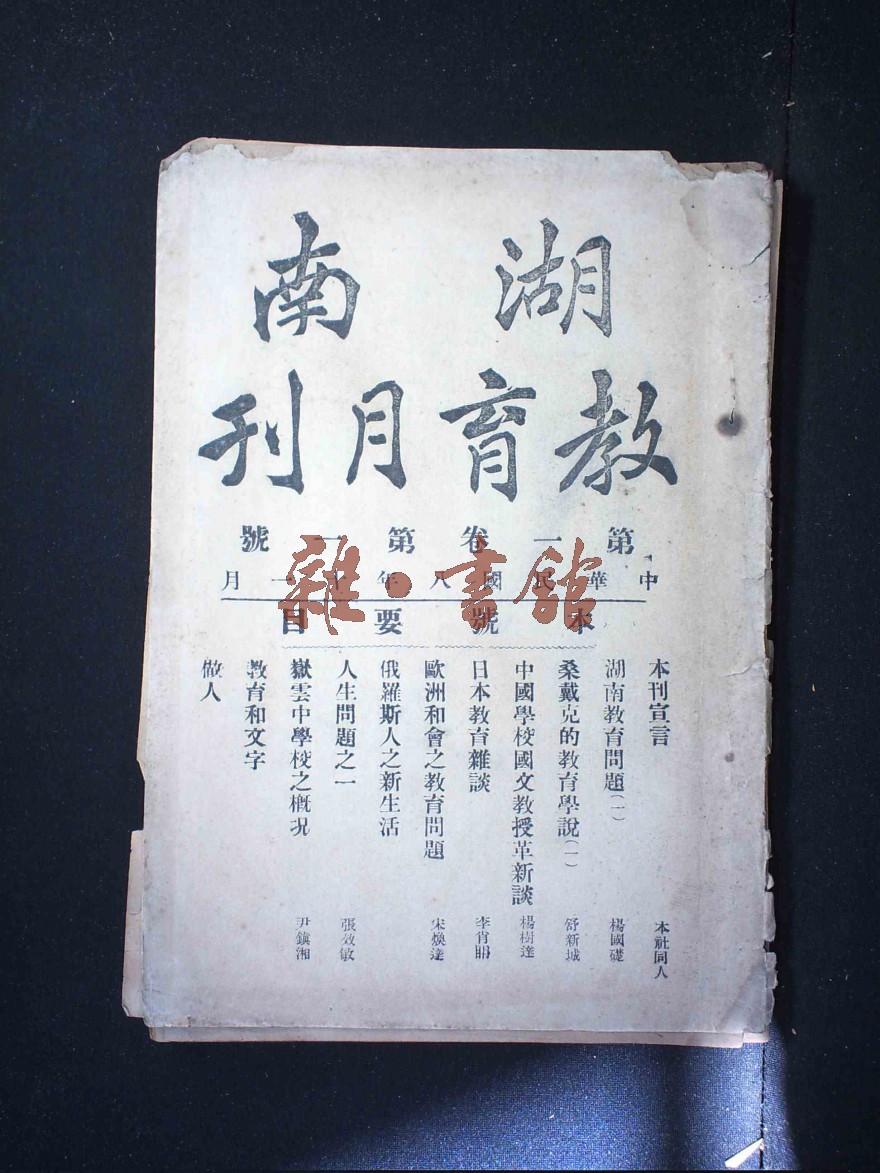 湖南
教育月刊
第一卷第一號
中華民國八年十一月
本號要目
本刊宣言 本社同人
湖南教育問題(一) 楊國礎
桑戴克的教育學說(一) 舒新城
中國學校國文教授革新談 楊樹達
日本教育雜談 李肖聃
歐洲和會之教育問題 宋煥達
俄羅斯人之新生活
人生問題之一 張效敏
嶽雲中學校之概況 尹鎮湘
教育和文字
做人
雜·書館